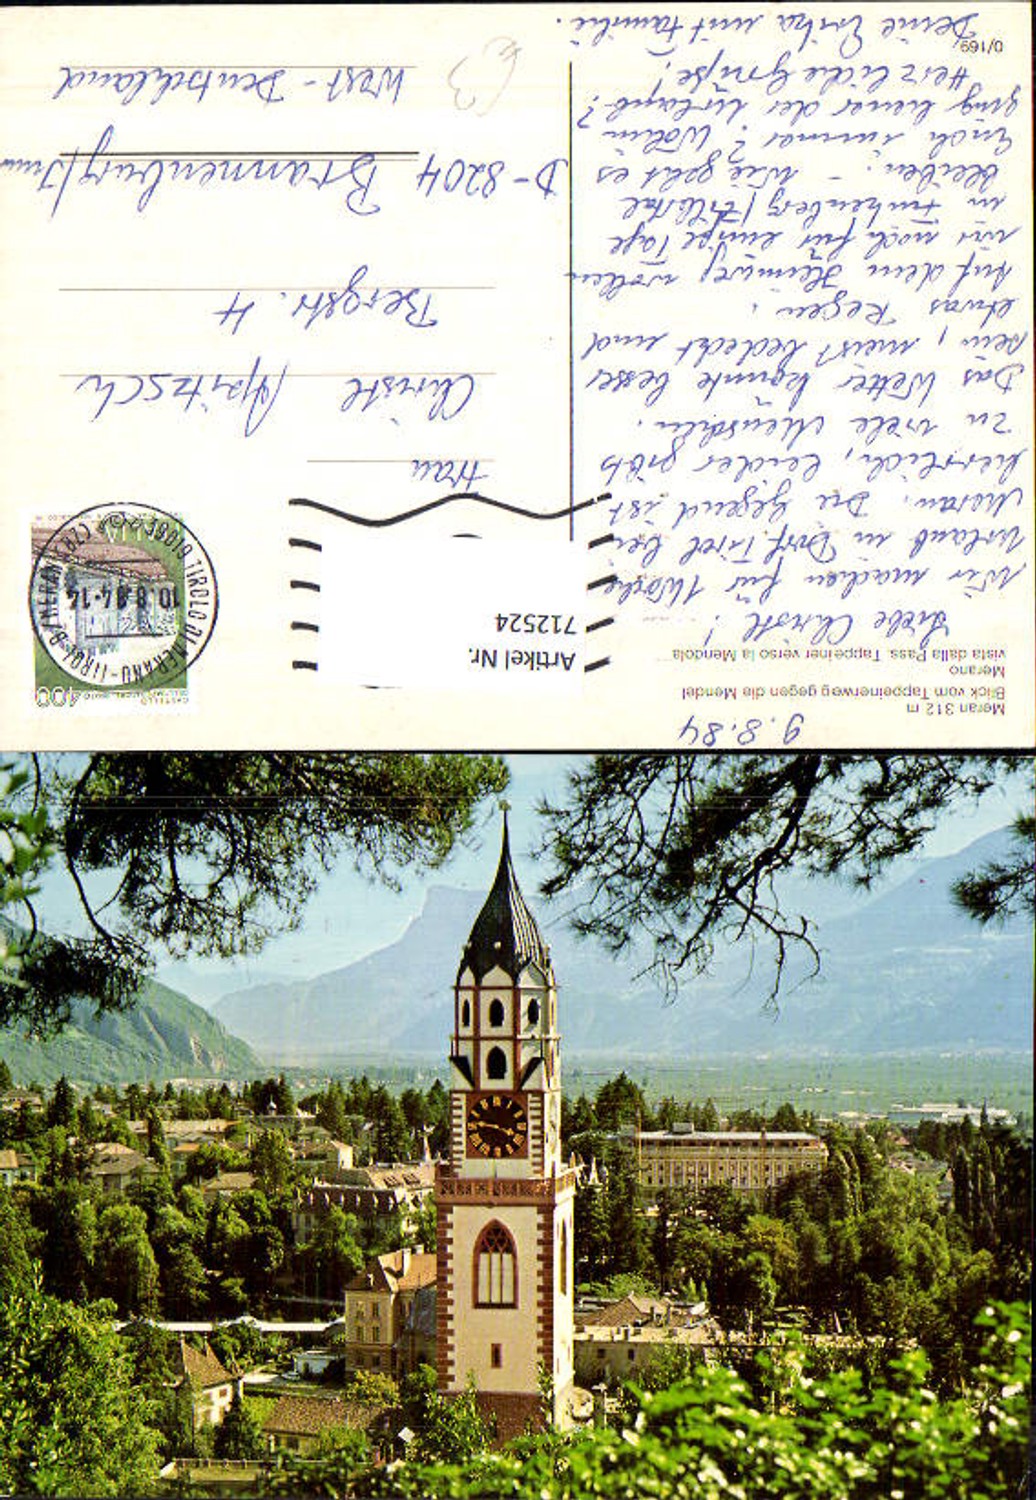 9.8.84
Meran 312 m
Blick vom Tappeinerweg gegen die Mendel
Merano
vista dalla Pass. Tappeiner verso la Mendola
Liebe Christl!
Wir machen für 1 Woche
Urlaub in Dorf Tirol bei
Meran. Die Gegend ist
herrlich, leider gibts
zu viele Menschen.
Das Wetter könnte besser
sein, meist bedeckt und
etwas Regen.
Auf dem Heimweg wollen
wir noch für einige Tage
in Finkenberg/Zillertal
bleiben. – Wie geht es
Euch immer? Wohin
ging heuer der Urlaub?
Herzliche Grüße!
Deine Erika mit Familie.
0/169
Artikel Nr.
712524
400
CASTELLO
ITALIA
10.8.84-14
Frau
Christl
Bergstr. 4
D-8204 Brannenburg/Inn
West-Deutschland
€3